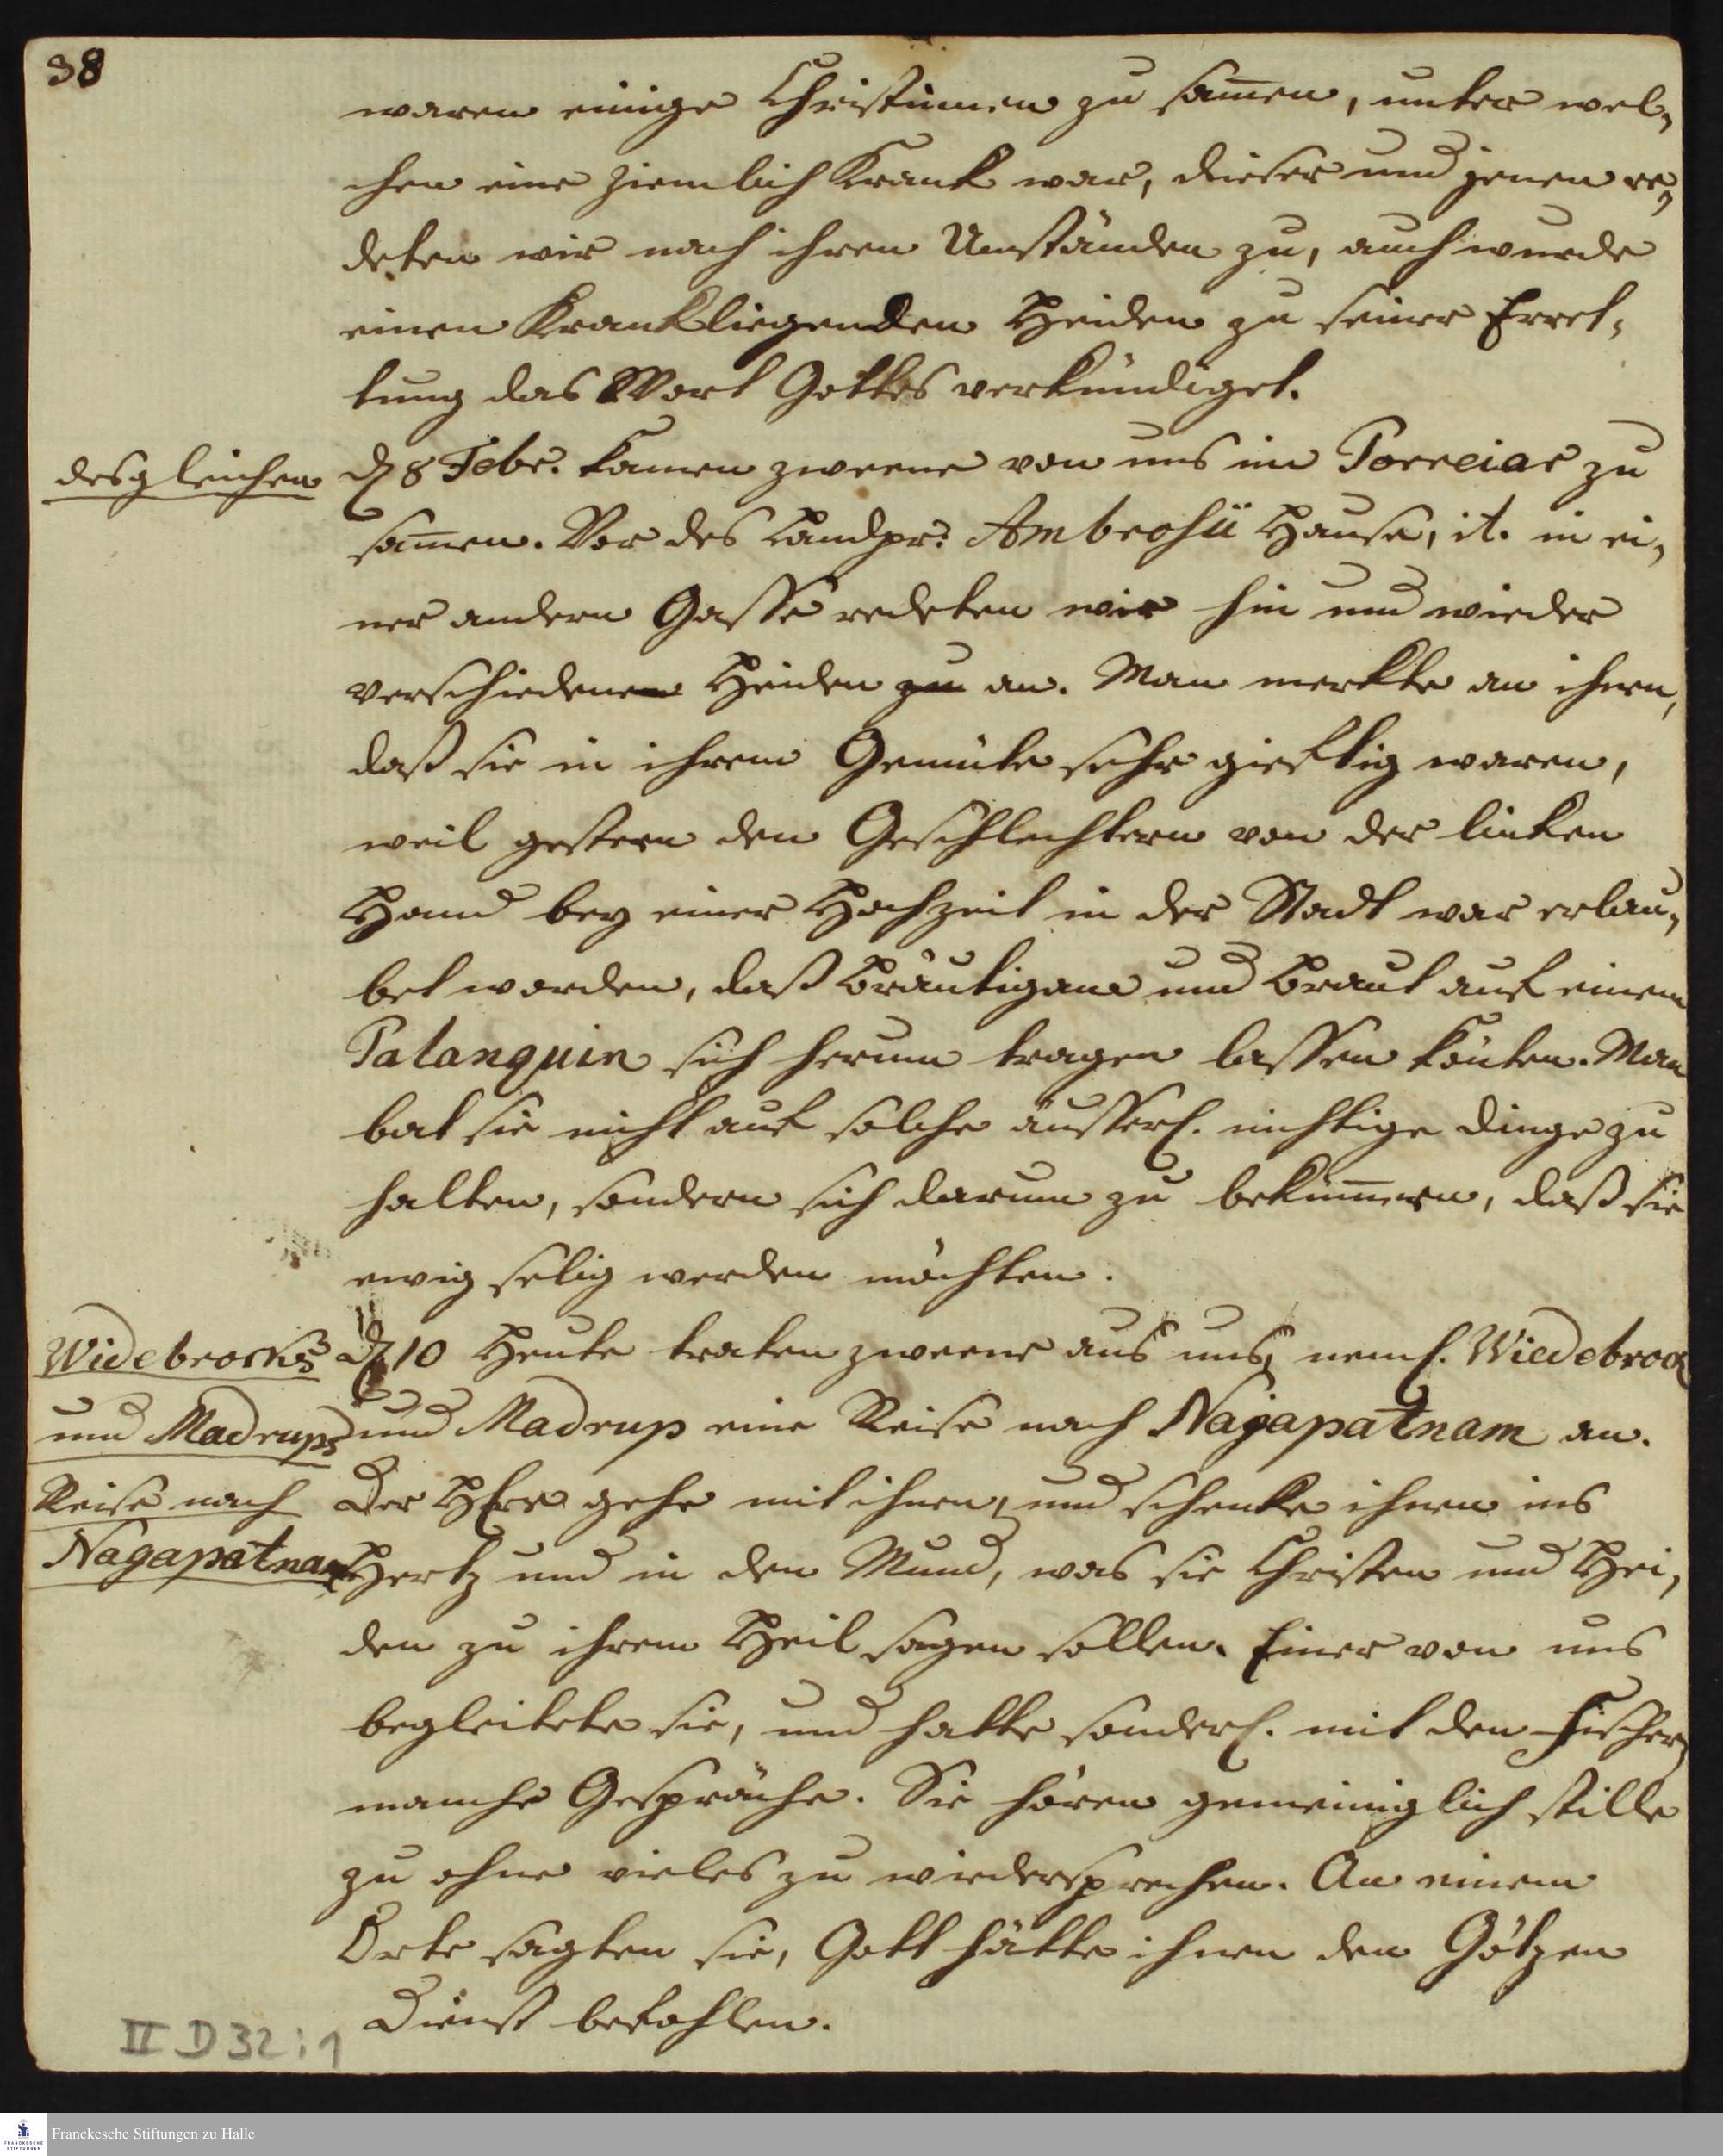 38
waren einige Christinnen zu sam̅en, unter wel-
chen eine ziemlich Kranck war, dieser und jenen re-
deten wir nach ihren Umständen zu, auch wurde
einen Kranckliegenden Heiden zu seiner Erret-
tung das Wort Gottes verkündiget.
desgleichen
d. 8 Febr. kamen zweene von uns im Porreiar zu
sam̅en. Vor des Landpr: Ambrosii Hause, it. in ei-
ner andern Gasse redeten wir hin und wieder
verschiedene Heiden zu an. Man merkte an ihnen,
daß sie in ihrem Gemüte sehr gieftig waren,
weil gestern den Geschlechtern von der lincken
Hand bey einer Hochzeit in der Stadt war erlau-
bet worden, daß Bräutigam und Braut auf einem
Palanquin sich herum tragen lassen könten. Man
bat sie nicht auf solche äusserl. nichtige Dinge zu
halten, sondern sich darum zu beküm̅ern, daß sie
ewig selig werden möchten.
Widebrocks
und Madrups
Reise nach
Nagapatnam
d. 10 Heute traten zweene aus uns, neml. Wiedebrock
und Madrup eine Reise nach Nagapatnam an.
Der HErr gehe mit ihnen, und schencke ihnen ins
Hertz und in den Mund, was sie Christen und Hei-
den zu ihrem Heil sagen sollen. Einer von uns
begleitete sie, und hatte sonderl. mit den Fischern
manche Gespräche. Sie hören gemeiniglich stille
zu ohne vieles zu wiedersprechen. An einem
Orte sagten sie, Gott hätte ihnen den Götzen
Dienst befohlen.
II D 32 : 1
Franckesche Stiftungen zu Halle